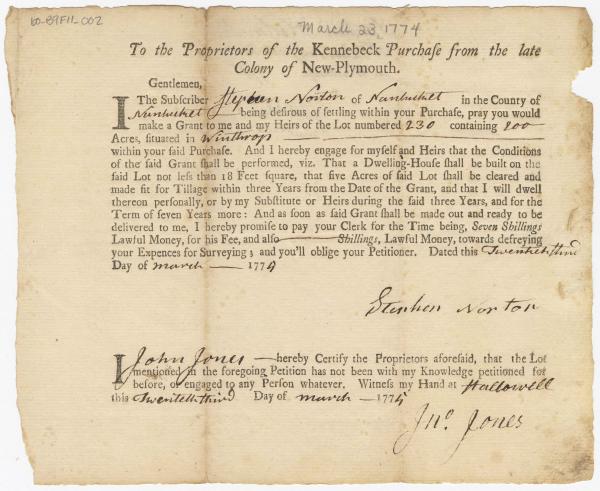 60-89F11-002
March 23, 1774
To the Proprietors of the Kennebeck Purchaſe from the late
Colony of New-Plymouth.
Gentlemen,
I The Subſcriber Stephen Norton of Nantucket in the County of
Nantucket being deſirous of ſettling within your Purchaſe, pray you would
make a Grant to me and my Heirs of the Lot numbered 230 containing 200
Acres, ſituated in Winthrop
within your ſaid Purchaſe. And I hereby engage for myſelf and Heirs that the Conditions
of the ſaid Grant ſhall be performed, viz. That a Dwelling-Houſe ſhall be built on the
ſaid Lot not leſs than 18 Feet ſquare, that five Acres of ſaid Lot ſhall be cleared and
made fit for Tillage within three Years from the Date of the Grant, and that I will dwell
thereon perſonally, or by my Subſtitute or Heirs during the ſaid three Years, and for the
Term of ſeven Years more: And as ſoon as ſaid Grant ſhall be made out and ready to be
delivered to me, I hereby promiſe to pay your Clerk for the Time being, Seven Shillings
Lawful Money, for his Fee, and alſo Shillings, Lawful Money, towards defreying
your Expences for Surveying; and you'll oblige your Petitioner. Dated this Twentieth third
Day of march 1774
Stephen Norton
I John Jones hereby Certify the Proprietors aforeſaid, that the Lot
mentioned in the foregoing Petition has not been with my Knowledge petitioned for
before, or engaged to any Perſon whatever. Witneſs my Hand at Hallowell
this Twentieth third Day of march 1774
Jno. Jones